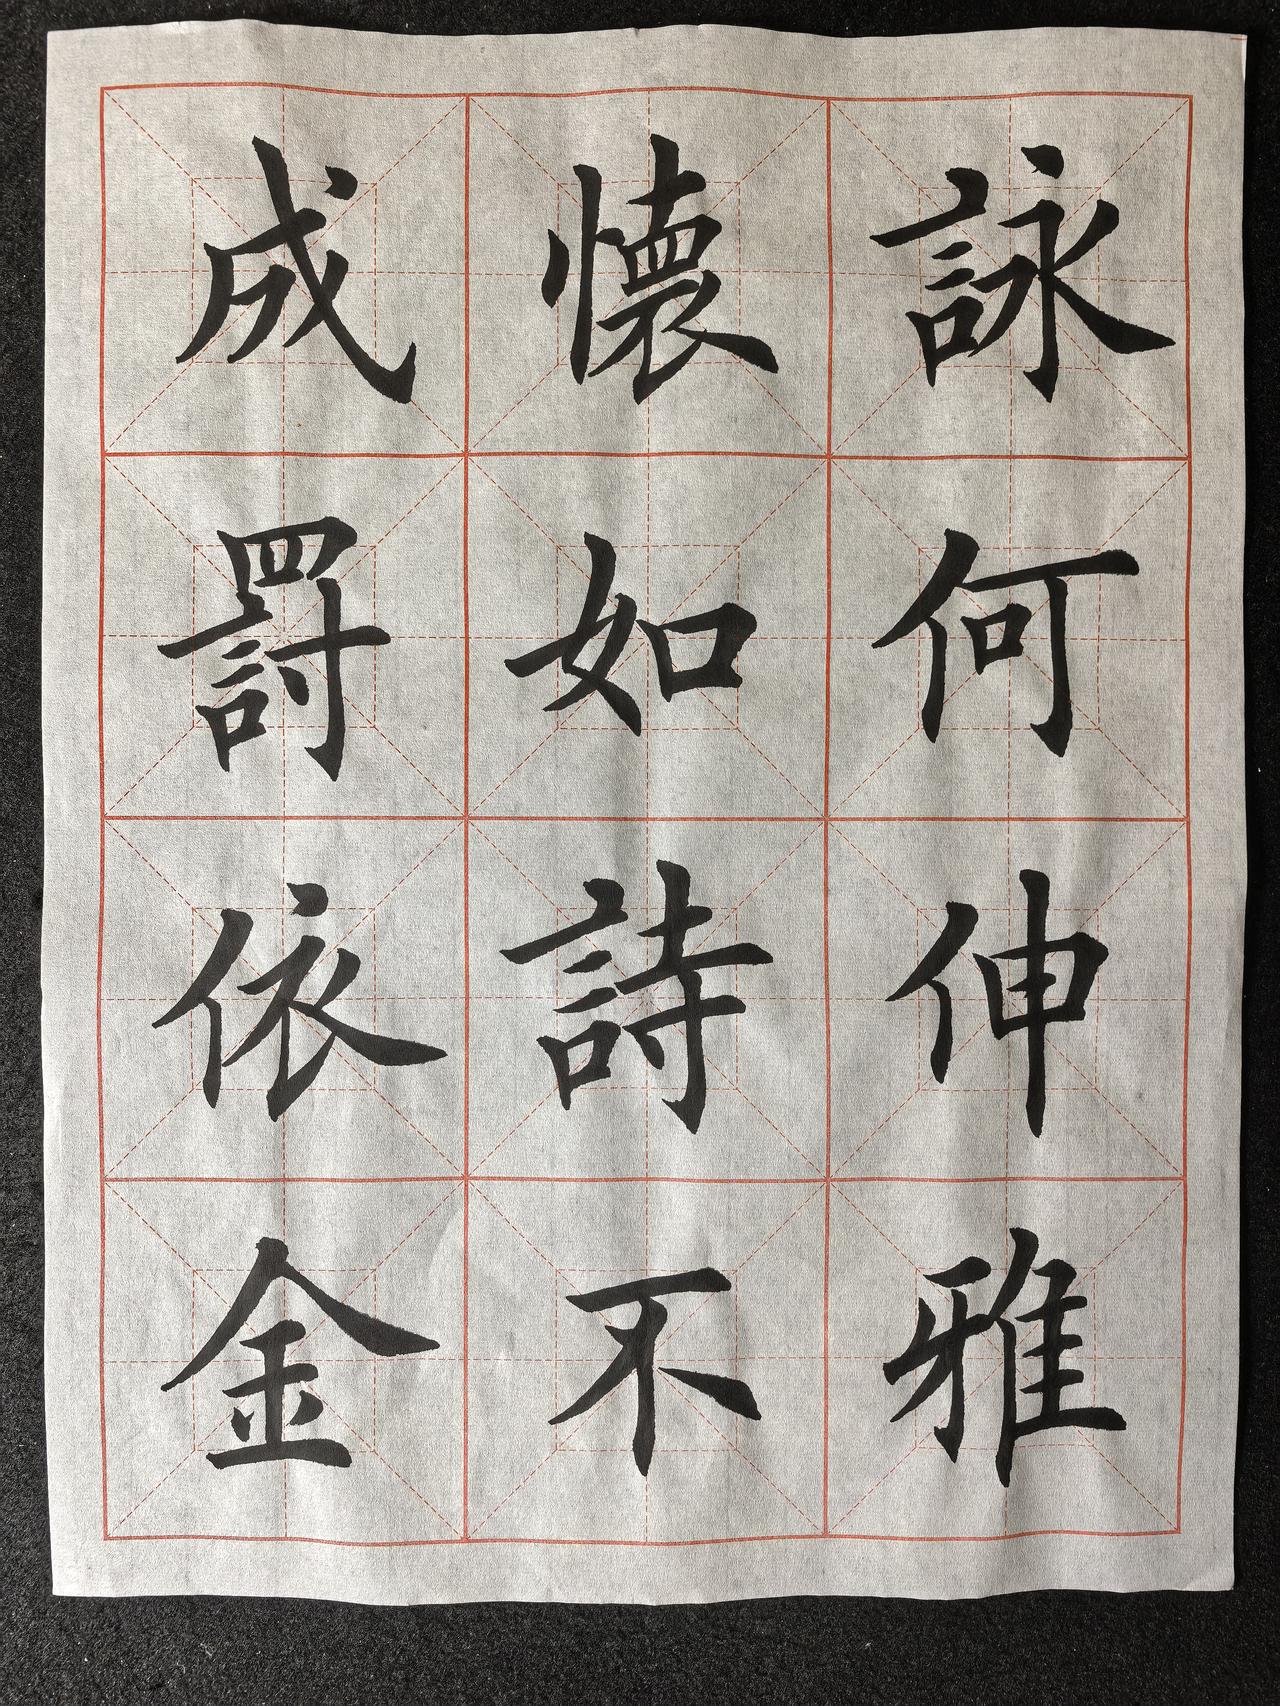 詠何伸雅
懷如詩不
成罰依金